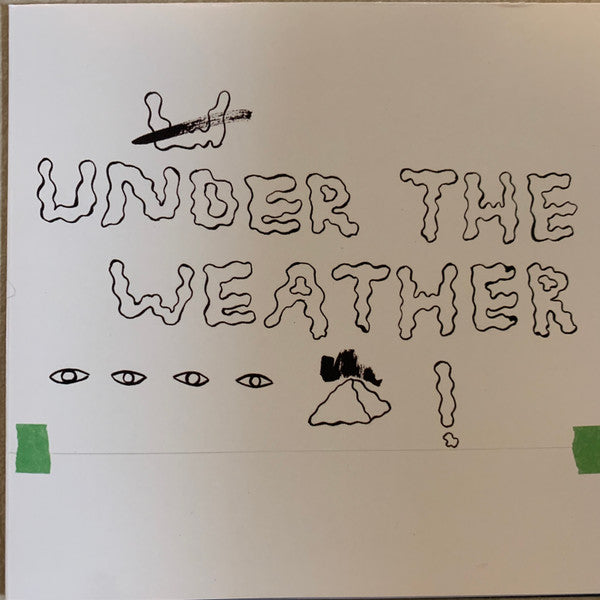 UNDER THE
WEATHER
!